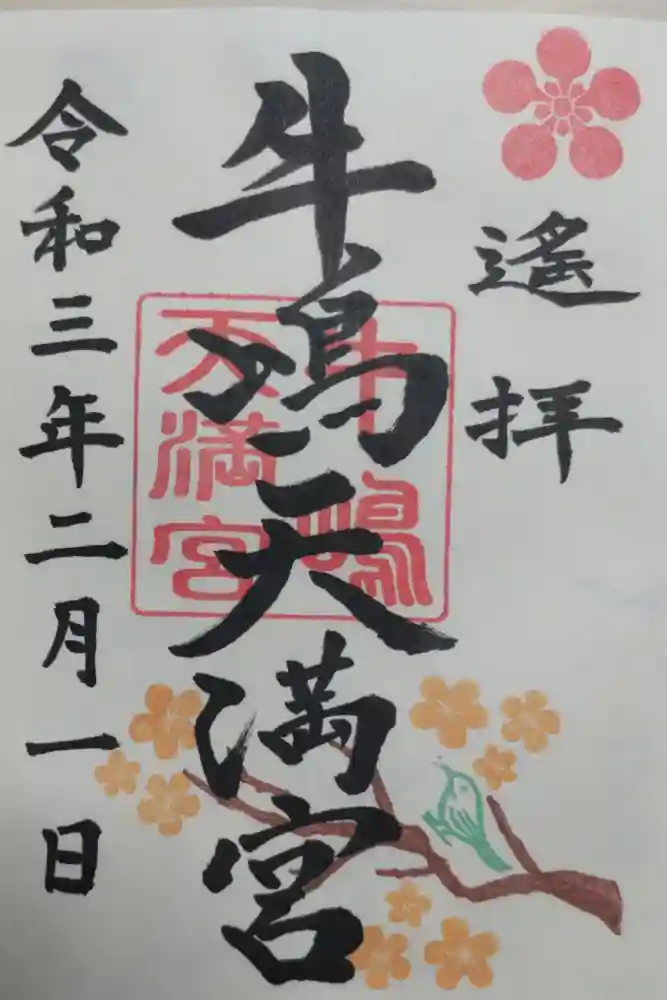 遙拝
牛嶋天満宮
令和三年二月一日
牛嶋
天満宮